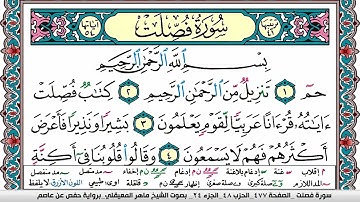 سُورَةُ فُصِّلَتْ
بِسْمِ اللَّهِ الرَّحْمَٰنِ الرَّحِيمِ
حمٓ ١ تَنزِيلٌ مِّنَ الرَّحْمَٰنِ الرَّحِيمِ ٢ كِتَابٌ فُصِّلَتْ
ءَايَاتُهُ قُرْءَانًا عَرَبِيًّا لِّقَوْمٍ يَعْلَمُونَ ٣ بَشِيرًا وَنَذِيرًا فَأَعْرَضَ
أَكْثَرُهُمْ فَهُمْ لَا يَسْمَعُونَ ٤ وَقَالُوا قُلُوبُنَا فِي أَكِنَّةٍ
سورة فصلت الصفحة ٤٧٧ الجزء ٢٤ بصوت الشيخ ماهر المعيقلي برواية حفص عن عاصم